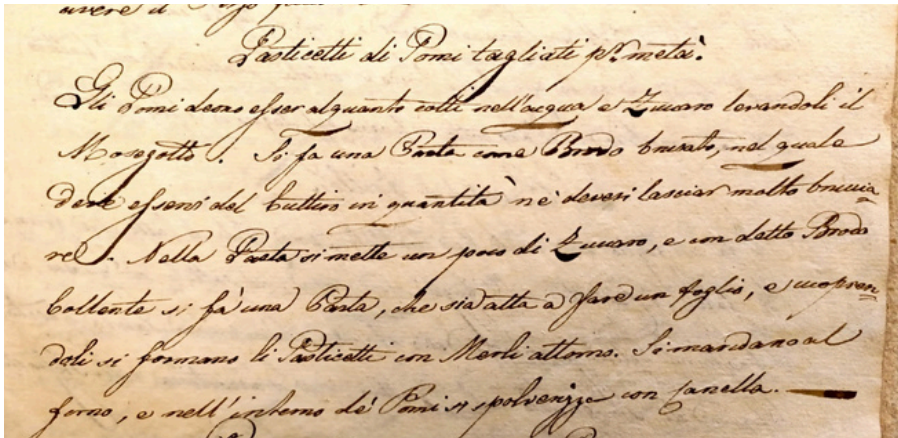 avere il
Pasticetti di Pomi tagliati pr. metà.
Gli Pomi devno esser alquanto cotti nell'acqua e Zuccaro levandoli il
Mosegotto. Si fa una Pasta come Brodo brusato, nel quale
deve esservi del buttiro in quantità nè devesi lasciar molto brucia=
re. Nella Pasta si mette un poco di Zuccaro, e con detto Brodo
bollente si fà una Pasta, che sia atta a fare un foglio, e scopren=
doli si formano li Pasticetti con Merli attorno. Si mandano al
forno, e nell'interno de' Pomi si spolverizza con Canella.